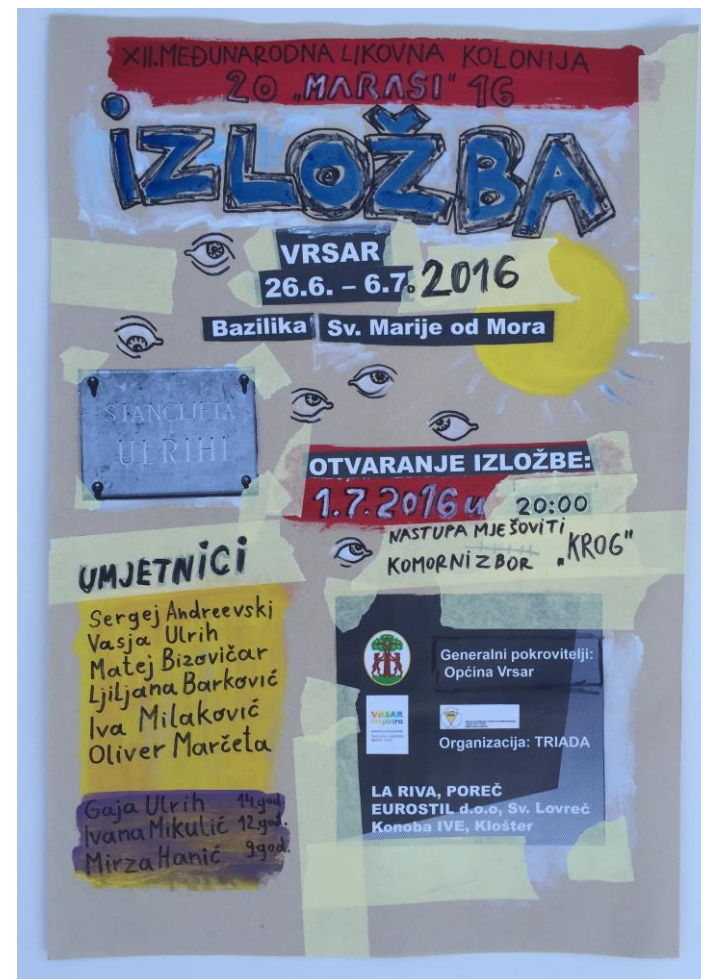 XII. MEĐUNARODNA LIKOVNA KOLONIJA
20 „MARASI" 16
iZLOŽBA
VRSAR
26.6. – 6.7. 2016
Bazilika Sv. Marije od Mora
STANCIJETA
ULRIHI
OTVARANJE IZLOŽBE:
1.7.2016 u 20:00
NASTUPA MJEŠOVITI
KOMORNI ZBOR „KROG"
UMJETNiCi
Sergej Andreevski
Vasja Ulrih
Matej Bizovičar
Ljiljana Barković
Iva Milaković
Oliver Marčeta
Gaja Ulrih 14.god.
Ivana Mikulić 12.god.
Mirza Hanić 9god.
Generalni pokrovitelji:
Općina Vrsar
VRSAR
inspirira
Organizacija: TRIADA
LA RIVA, POREČ
EUROSTIL d.o.o, Sv. Lovreč
Konoba IVE, Klošter